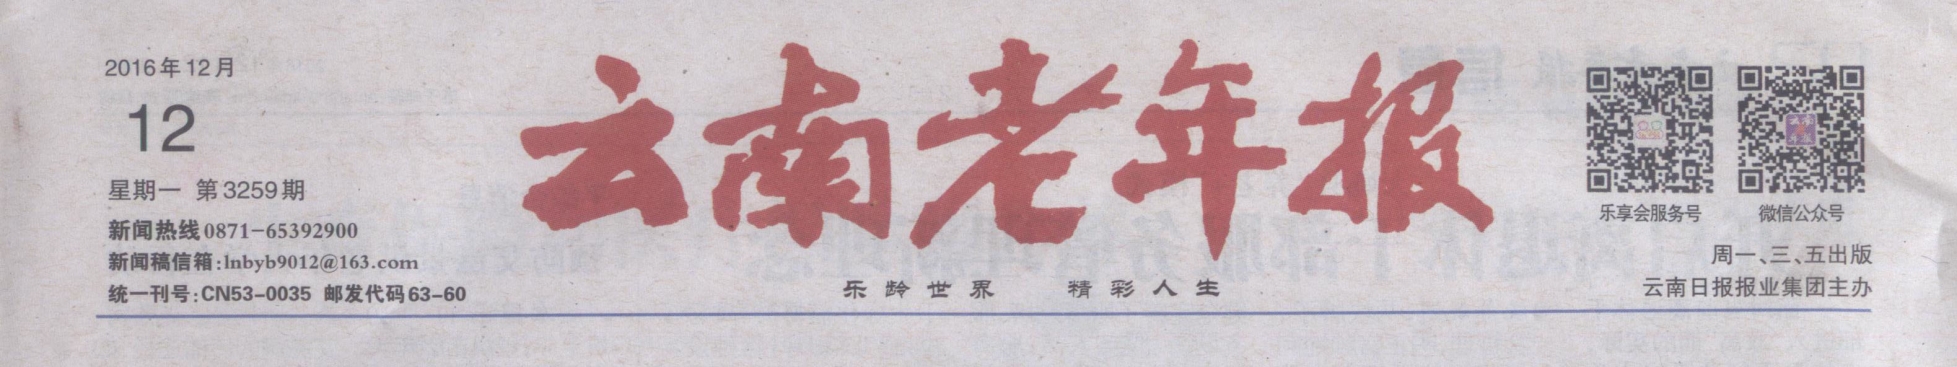 2016年12月
12
星期一 第3259期
新闻热线0871-65392900
新闻稿信箱:lnbyb9012@163.com
统一刊号:CN53-0035 邮发代码63-60
云南老年报
乐龄世界 精彩人生
乐享会服务号 微信公众号
周一、三、五出版
云南日报报业集团主办